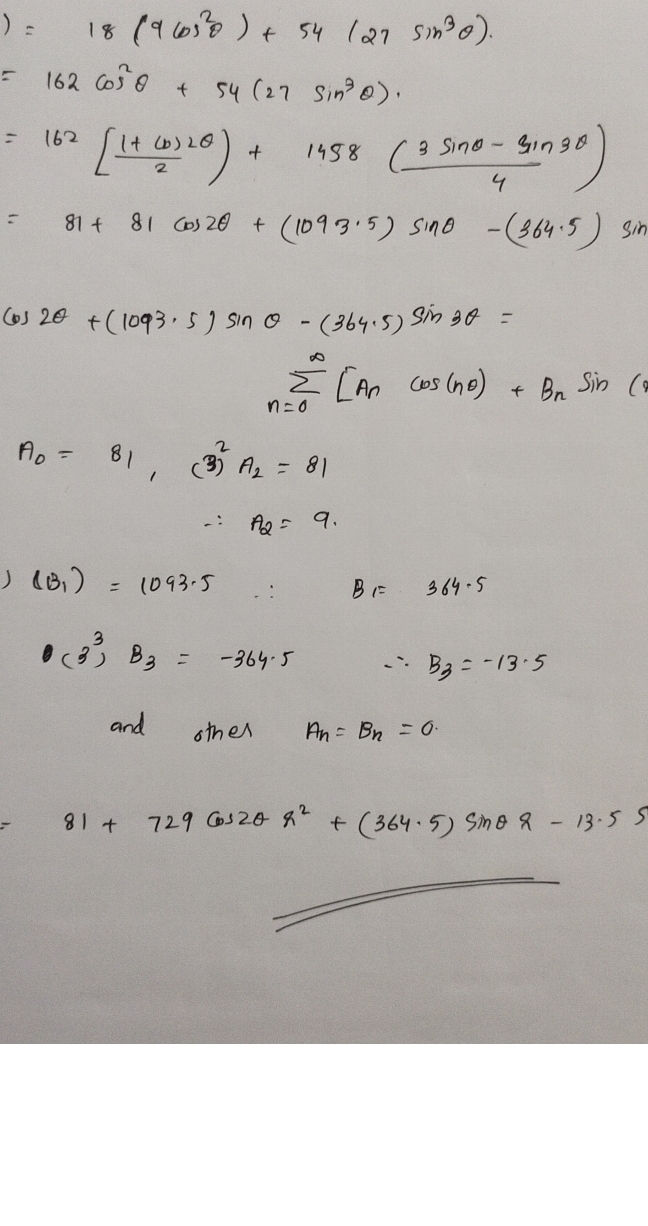 ) = 18 (9 cos²θ) + 54 (27 sin³θ).
= 162 cos²θ + 54 (27 sin³θ).
= 162 [(1 + cos 2θ)/2) + 1458 ((3 sinθ - sin 3θ)/4)
= 81 + 81 cos 2θ + (1093.5) sinθ - (364.5) sin
cos 2θ + (1093.5) sin θ - (364.5) sin 3θ =
∞ Σ n=0 [An cos(nθ) + Bn sin (
A0 = 81, (3)² A2 = 81
∴ A2 = 9.
) (B1) = 1093.5 ∴ B1 = 364.5
(3³) B3 = -364.5 ∴ B3 = -13.5
and other An = Bn = 0.
= 81 + 729 cos 2θ r² + (364.5) sin θ r - 13.5 s